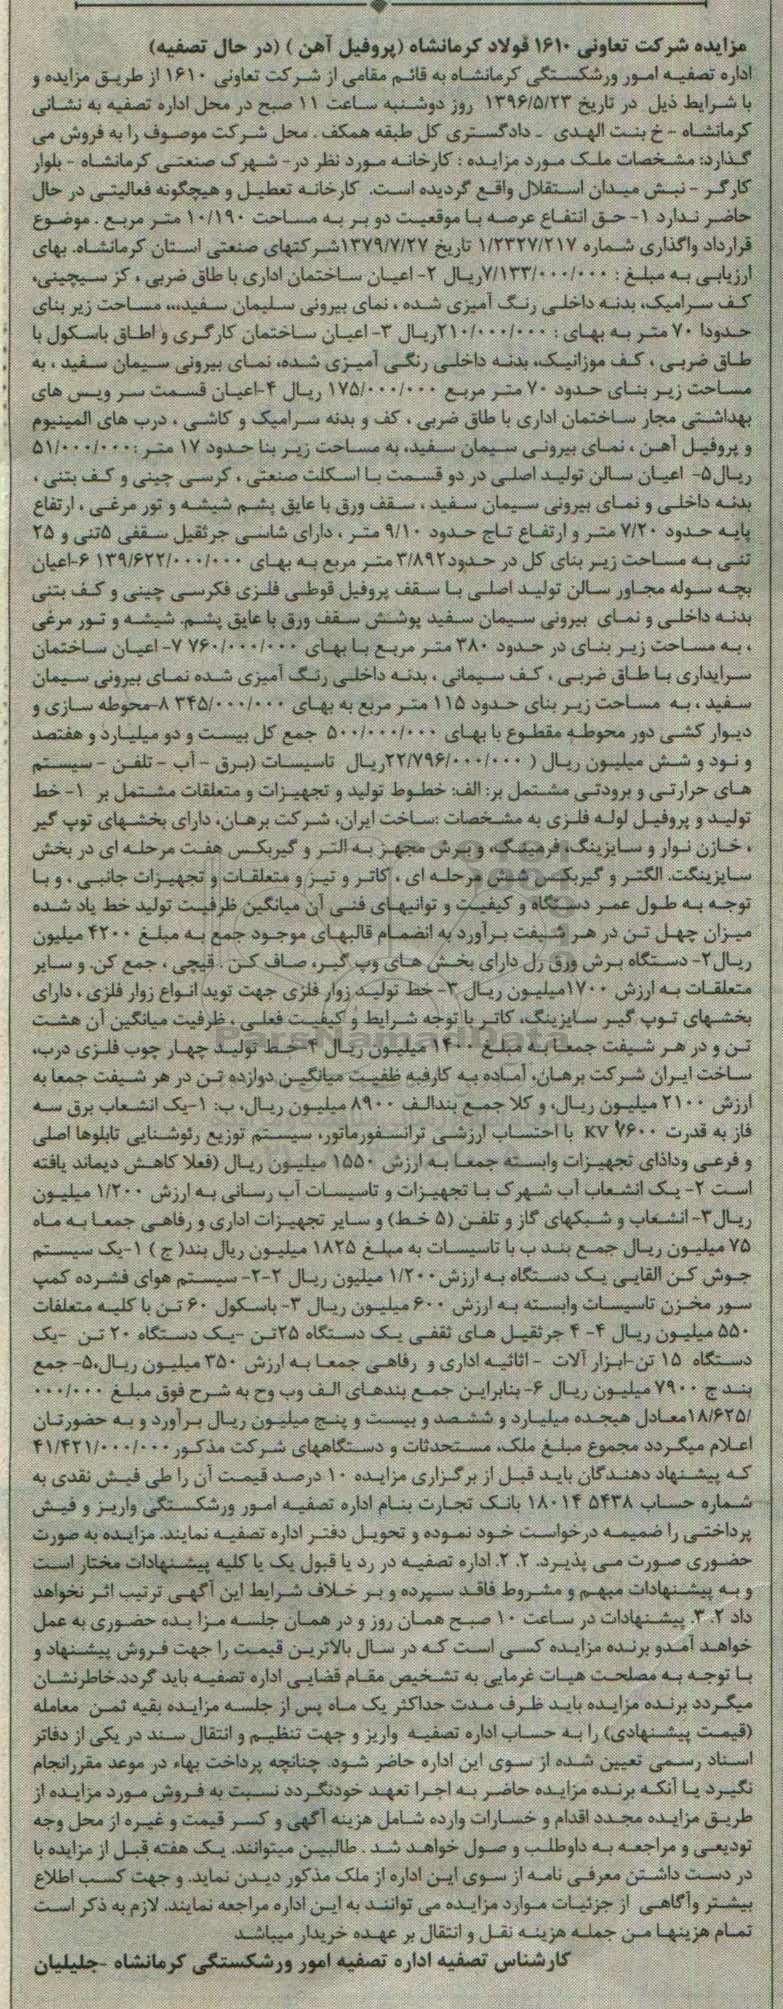 مزایده شرکت تعاونی ۱۶۱۰ فولاد کرمانشاه (پروفیل آهن ) (در حال تصفیه)
اداره تصفیه امور ورشکستگی کرمانشاه به قائم مقامی از شرکت تعاونی ۱۶۱۰ از طریق مزایده و
با شرایط ذیل در تاریخ ۱۳۹۶/۵/۲۳ روز دوشنبه ساعت ۱۱ صبح در محل اداره تصفیه به نشانی
کرمانشاه - خ بنت الهدی - دادگستری کل طبقه همکف . محل شرکت موصوف را به فروش می
گذارد: مشخصات ملک مورد مزایده : کارخانه مورد نظر در- شهرک صنعتی کرمانشاه - بلوار
کارگر - نبش میدان استقلال واقع گردیده است. کارخانه تعطیل و هیچگونه فعالیتی در حال
حاضر ندارد ۱- حق انتفاع عرصه با موقعیت دو بر به مساحت ۱۰/۱۹۰ متر مربع . موضوع
قرارداد واگذاری شماره ۱/۲۳۲۷/۲۱۷ تاریخ ۱۳۷۹/۷/۲۷شرکتهای صنعتی استان کرمانشاه. بهای
ارزیابی به مبلغ : ۷/۱۳۳/۰۰۰/۰۰۰ریال ۲- اعیان ساختمان اداری با طاق ضربی ، کز سیچینی،
کف سرامیک، بدنه داخلی رنگ آمیزی شده ، نمای بیرونی سلیمان سفید،،، مساحت زیر بنای
حدودا ۷۰ متر به بهای : ۲۱۰/۰۰۰/۰۰۰ریال ۳- اعیان ساختمان کارگری و اطاق باسکول با
طاق ضربی ، کف موزانیک، بدنه داخلی رنگی آمیزی شده، نمای بیرونی سیمان سفید ، به
مساحت زیر بنای حدود ۷۰ متر مربع ۱۷۵/۰۰۰/۰۰۰ ریال ۴-اعیان قسمت سر ویس های
بهداشتی مجار ساختمان اداری با طاق ضربی ، کف و بدنه سرامیک و کاشی ، درب های المینیوم
و پروفیل آهن ، نمای بیرونی سیمان سفید، به مساحت زیر بنا حدود ۱۷ متر :۵۱/۰۰۰/۰۰۰
ریال۵- اعیان سالن تولید اصلی در دو قسمت با اسکلت صنعتی ، کرسی چینی و کف بتنی ،
بدنه داخلی و نمای بیرونی سیمان سفید ، سقف ورق با عایق پشم شیشه و تور مرغی ، ارتفاع
پایه حدود ۷/۲۰ متر و ارتفاع تاج حدود ۹/۱۰ متر ، دارای شاسی جرثقیل سقفی ۵تنی و ۲۵
تنی به مساحت زیر بنای کل در حدود۳/۸۹۲ متر مربع به بهای ۱۳۹/۶۲۲/۰۰۰/۰۰۰ ۶-اعیان
بچه سوله مجاور سالن تولید اصلی با سقف پروفیل قوطی فلزی فکرسی چینی و کف بتنی
بدنه داخلی و نمای بیرونی سیمان سفید پوشش سقف ورق با عایق پشم. شیشه و تور مرغی
، به مساحت زیر بنای در حدود ۳۸۰ متر مربع با بهای ۷۶۰/۰۰۰/۰۰۰ ۷- اعیان ساختمان
سرایداری با طاق ضربی ، کف سیمانی ، بدنه داخلی رنگ آمیزی شده نمای بیرونی سیمان
سفید ، به مساحت زیر بنای حدود ۱۱۵ متر مربع به بهای ۳۴۵/۰۰۰/۰۰۰ ۸-محوطه سازی و
دیوار کشی دور محوطه مقطوع با بهای ۵۰۰/۰۰۰/۰۰۰ جمع کل بیست و دو میلیارد و هفتصد
و نود و شش میلیون ریال ( ۲۲/۷۹۶/۰۰۰/۰۰۰ریال تاسیسات (برق - آب - تلفن - سیستم
های حرارتی و برودتی مشتمل بر: الف: خطوط تولید و تجهیزات و متعلقات مشتمل بر ۱- خط
تولید و پروفیل لوله فلزی به مشخصات :ساخت ایران، شرکت برهان، دارای بخشهای توپ گیر
، خازن نوار و سایزینگ، فرمینگ، و برش مجهز به التر و گیربکس هفت مرحله ای در بخش
سایزینگت. الگتر و گیربکس شش مرحله ای ، کاتر و تیز و متعلقات و تجهیزات جانبی ، و با
توجه به طول عمر دستگاه و کیفیت و توانیهای فنی آن میانگین ظرفیت تولید خط یاد شده
میزان چهل تن در هر شیفت برآورد به انضمام قالبهای موجود جمع به مبلغ ۴۲۰۰ میلیون
ریال۲- دستگاه برش ورق رل دارای بخش های وپ گیر، صاف کن . قیچی ، جمع کن. و سایر
متعلقات به ارزش ۱۷۰۰میلیون ریال ۳- خط تولید زوار فلزی جهت توید انواع زوار فلزی ، دارای
بخشهای توپ گیر سایزینگ، کاتر با توجه شرایط و کیفیت فعلی ، ظرفیت میانگین آن هشت
تن و در هر شیفت جمعا به مبلغ ۱۴۰۰ میلیون ریال ۴-خط تولید چهار چوب فلزی درب،
ساخت ایران شرکت برهان، آماده به کارفبه ظفیت میانگین دوازده تن در هر شیفت جمعا به
ارزش ۲۱۰۰ میلیون ریال، و کلا جمع بندالف ۸۹۰۰ میلیون ریال، ب: ۱-یک انشعاب برق سه
فاز به قدرت KV ۷۶۰۰ با احتساب ارزشی ترانسفورماتور، سیستم توزیع رئوشنایی تابلوها اصلی
و فرعی وداذای تجهیزات وابسته جمعا به ارزش ۱۵۵۰ میلیون ریال (فعلا کاهش دیماند یافته
است ۲- یک انشعاب آب شهرک با تجهیزات و تاسیسات آب رسانی به ارزش ۱/۲۰۰ میلیون
ریال۳- انشعاب و شبکهای گاز و تلفن (۵ خط) و سایر تجهیزات اداری و رفاهی جمعا به ماه
۷۵ میلیون ریال جمع بند ب با تاسیسات به مبلغ ۱۸۲۵ میلیون ریال بند( ج ) ۱-یک سیستم
جوش کن القایی یک دستگاه به ارزش۱/۲۰۰ میلیون ریال ۲-۲- سیستم هوای فشرده کمپ
سور مخزن تاسیسات وابسته به ارزش ۶۰۰ میلیون ریال ۳- باسکول ۶۰ تن با کلیه متعلقات
۵۵۰ میلیون ریال ۴- ۴ جرثقیل های ثقفی یک دستگاه ۲۵تن -یک دستگاه ۲۰ تن -یک
دستگاه ۱۵ تن-ابزار آلات - اثاثیه اداری و رفاهی جمعا به ارزش ۳۵۰ میلیون ریال،۵- جمع
بند ج ۷۹۰۰ میلیون ریال ۶- بنابراین جمع بندهای الف وب وح به شرح فوق مبلغ ۰۰۰/۰۰۰
/۱۸/۶۲۵معادل هیجده میلیارد و ششصد و بیست و پنج میلیون ریال برآورد و به حضورتان
اعلام میگردد مجموع مبلغ ملک، مستحدثات و دستگاههای شرکت مذکور ۴۱/۴۲۱/۰۰۰/۰۰۰
که پیشنهاد دهندگان باید قبل از برگزاری مزایده ۱۰ درصد قیمت آن را طی فیش نقدی به
شماره حساب ۵۴۳۸ ۱۸۰۱۴ بانک تجارت بنام اداره تصفیه امور ورشکستگی واریز و فیش
پرداختی را ضمیمه درخواست خود نموده و تحویل دفتر اداره تصفیه نمایند. مزایده به صورت
حضوری صورت می پذیرد. ۲. ۲. اداره تصفیه در رد یا قبول یک یا کلیه پیشنهادات مختار است
و به پیشنهادات مبهم و مشروط فاقد سپرده و بر خلاف شرایط این آگهی ترتیب اثر نخواهد
داد ۲. ۳. پیشنهادات در ساعت ۱۰ صبح همان روز و در همان جلسه مزا یده حضوری به عمل
خواهد آمدو برنده مزایده کسی است که در سال بالاترین قیمت را جهت فروش پیشنهاد و
با توجه به مصلحت هیات غرمایی به تشخیص مقام قضایی اداره تصفیه باید گردد.خاطرنشان
میگردد برنده مزایده باید ظرف مدت حداکثر یک ماه پس از جلسه مزایده بقیه ثمن معامله
(قیمت پیشنهادی) را به حساب اداره تصفیه واریز و جهت تنظیم و انتقال سند در یکی از دفاتر
اسناد رسمی تعیین شده از سوی این اداره حاضر شود. چنانچه پرداخت بهاء در موعد مقررانجام
نگیرد یا آنکه برنده مزایده حاضر به اجرا تعهد خودنگردد نسبت به فروش مورد مزایده از
طریق مزایده مجدد اقدام و خسارات وارده شامل هزینه آگهی و کسر قیمت و غیره از محل وجه
تودیعی و مراجعه به داوطلب و صول خواهد شد . طالبین میتوانند. یک هفته قبل از مزایده با
در دست داشتن معرفی نامه از سوی این اداره از ملک مذکور دیدن نماید. و جهت کسب اطلاع
بیشتر وآگاهی از جزئیات موارد مزایده می توانند به این اداره مراجعه نمایند. لازم به ذکر است
تمام هزینها من جمله هزینه نقل و انتقال بر عهده خریدار میباشد
کارشناس تصفیه اداره تصفیه امور ورشکستگی کرمانشاه -جلیلیان
ParsNamadData